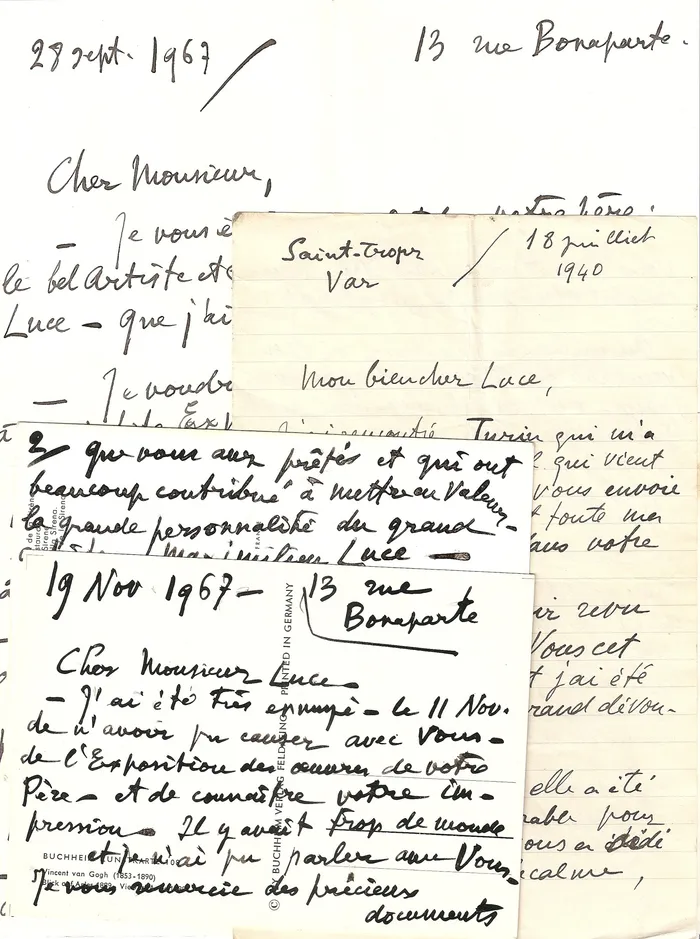 28 sept. 1967
13 rue Bonaparte.
Cher Monsieur,
Je vous é
votre père.
le bel Artiste et
Luce – que j'ai
— Je voudr
Saint-Tropez
Var
18 juillet
1940
Mon bien cher Luce,
Turin qui m'a
qui vient
vous envoie
toute ma
dans votre
revu
Vous cet
j'ai été
grand dévou-
elle a été
pour
calme,
2/ que vous avez prêtés et qui ont
beaucoup contribué à mettre en Valeur –
la grande personnalité du grand
Maximilien Luce —
19 Nov 1967 – 13 rue
Bonaparte
Cher Monsieur Luce –
– J'ai été très ennuyé – le 11 Nov.
de n'avoir pu causer avec Vous –
de l'Exposition des œuvres de votre
Père – et de connaître votre im –
pression – Il y avait trop de monde
et je n'ai pu parler avec Vous –
Je vous remercie des précieux
documents
PRINTED IN GERMANY
© BY BUCHHEIM VERLAG FELDAFING
Vincent van Gogh (1853-1890)